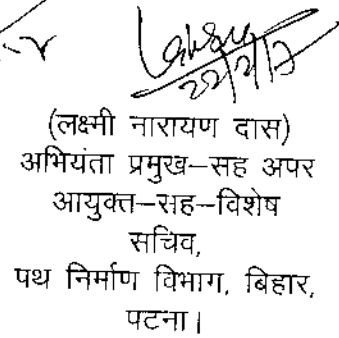 22/2/17
(लक्ष्मी नारायण दास)
अभियंता प्रमुख–सह अपर
आयुक्त–सह–विशेष
सचिव,
पथ निर्माण विभाग, बिहार,
पटना।